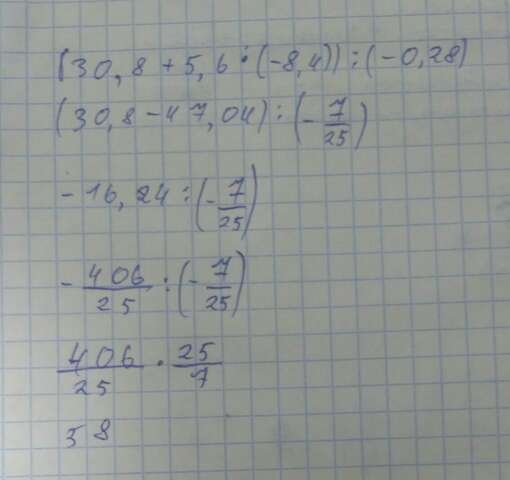 (30,8+5,6·(-8,4)):(-0,28)
(30,8-47,04):(-7/25)
-16,24:(-7/25)
-406/25:(-7/25)
406/25·25/7
58